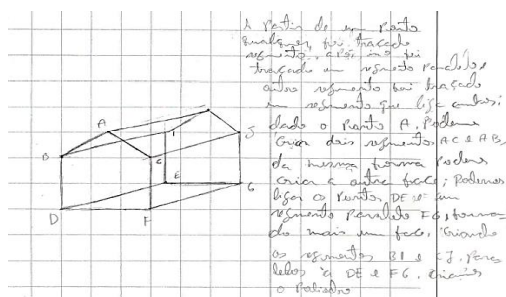 A partir de um Ponto
qualquer, foi traçado
segmento, após isso foi
traçado um segmento Paralelo e
outro segmento foi traçado
um segmento que liga ambos;
dado o Ponto A. Podemos
Criar dois segmentos AC e AB,
da mesma forma Podemos
Criar a outra face; Podemos
ligar os Pontos DE e um
segmento Paralelo FG, forman-
do mais um face. Criando
os segmentos BI e CJ. Para
lelos a DE e FG. Criamos
o Poliedro
A
B
I
C
J
E
G
D
F